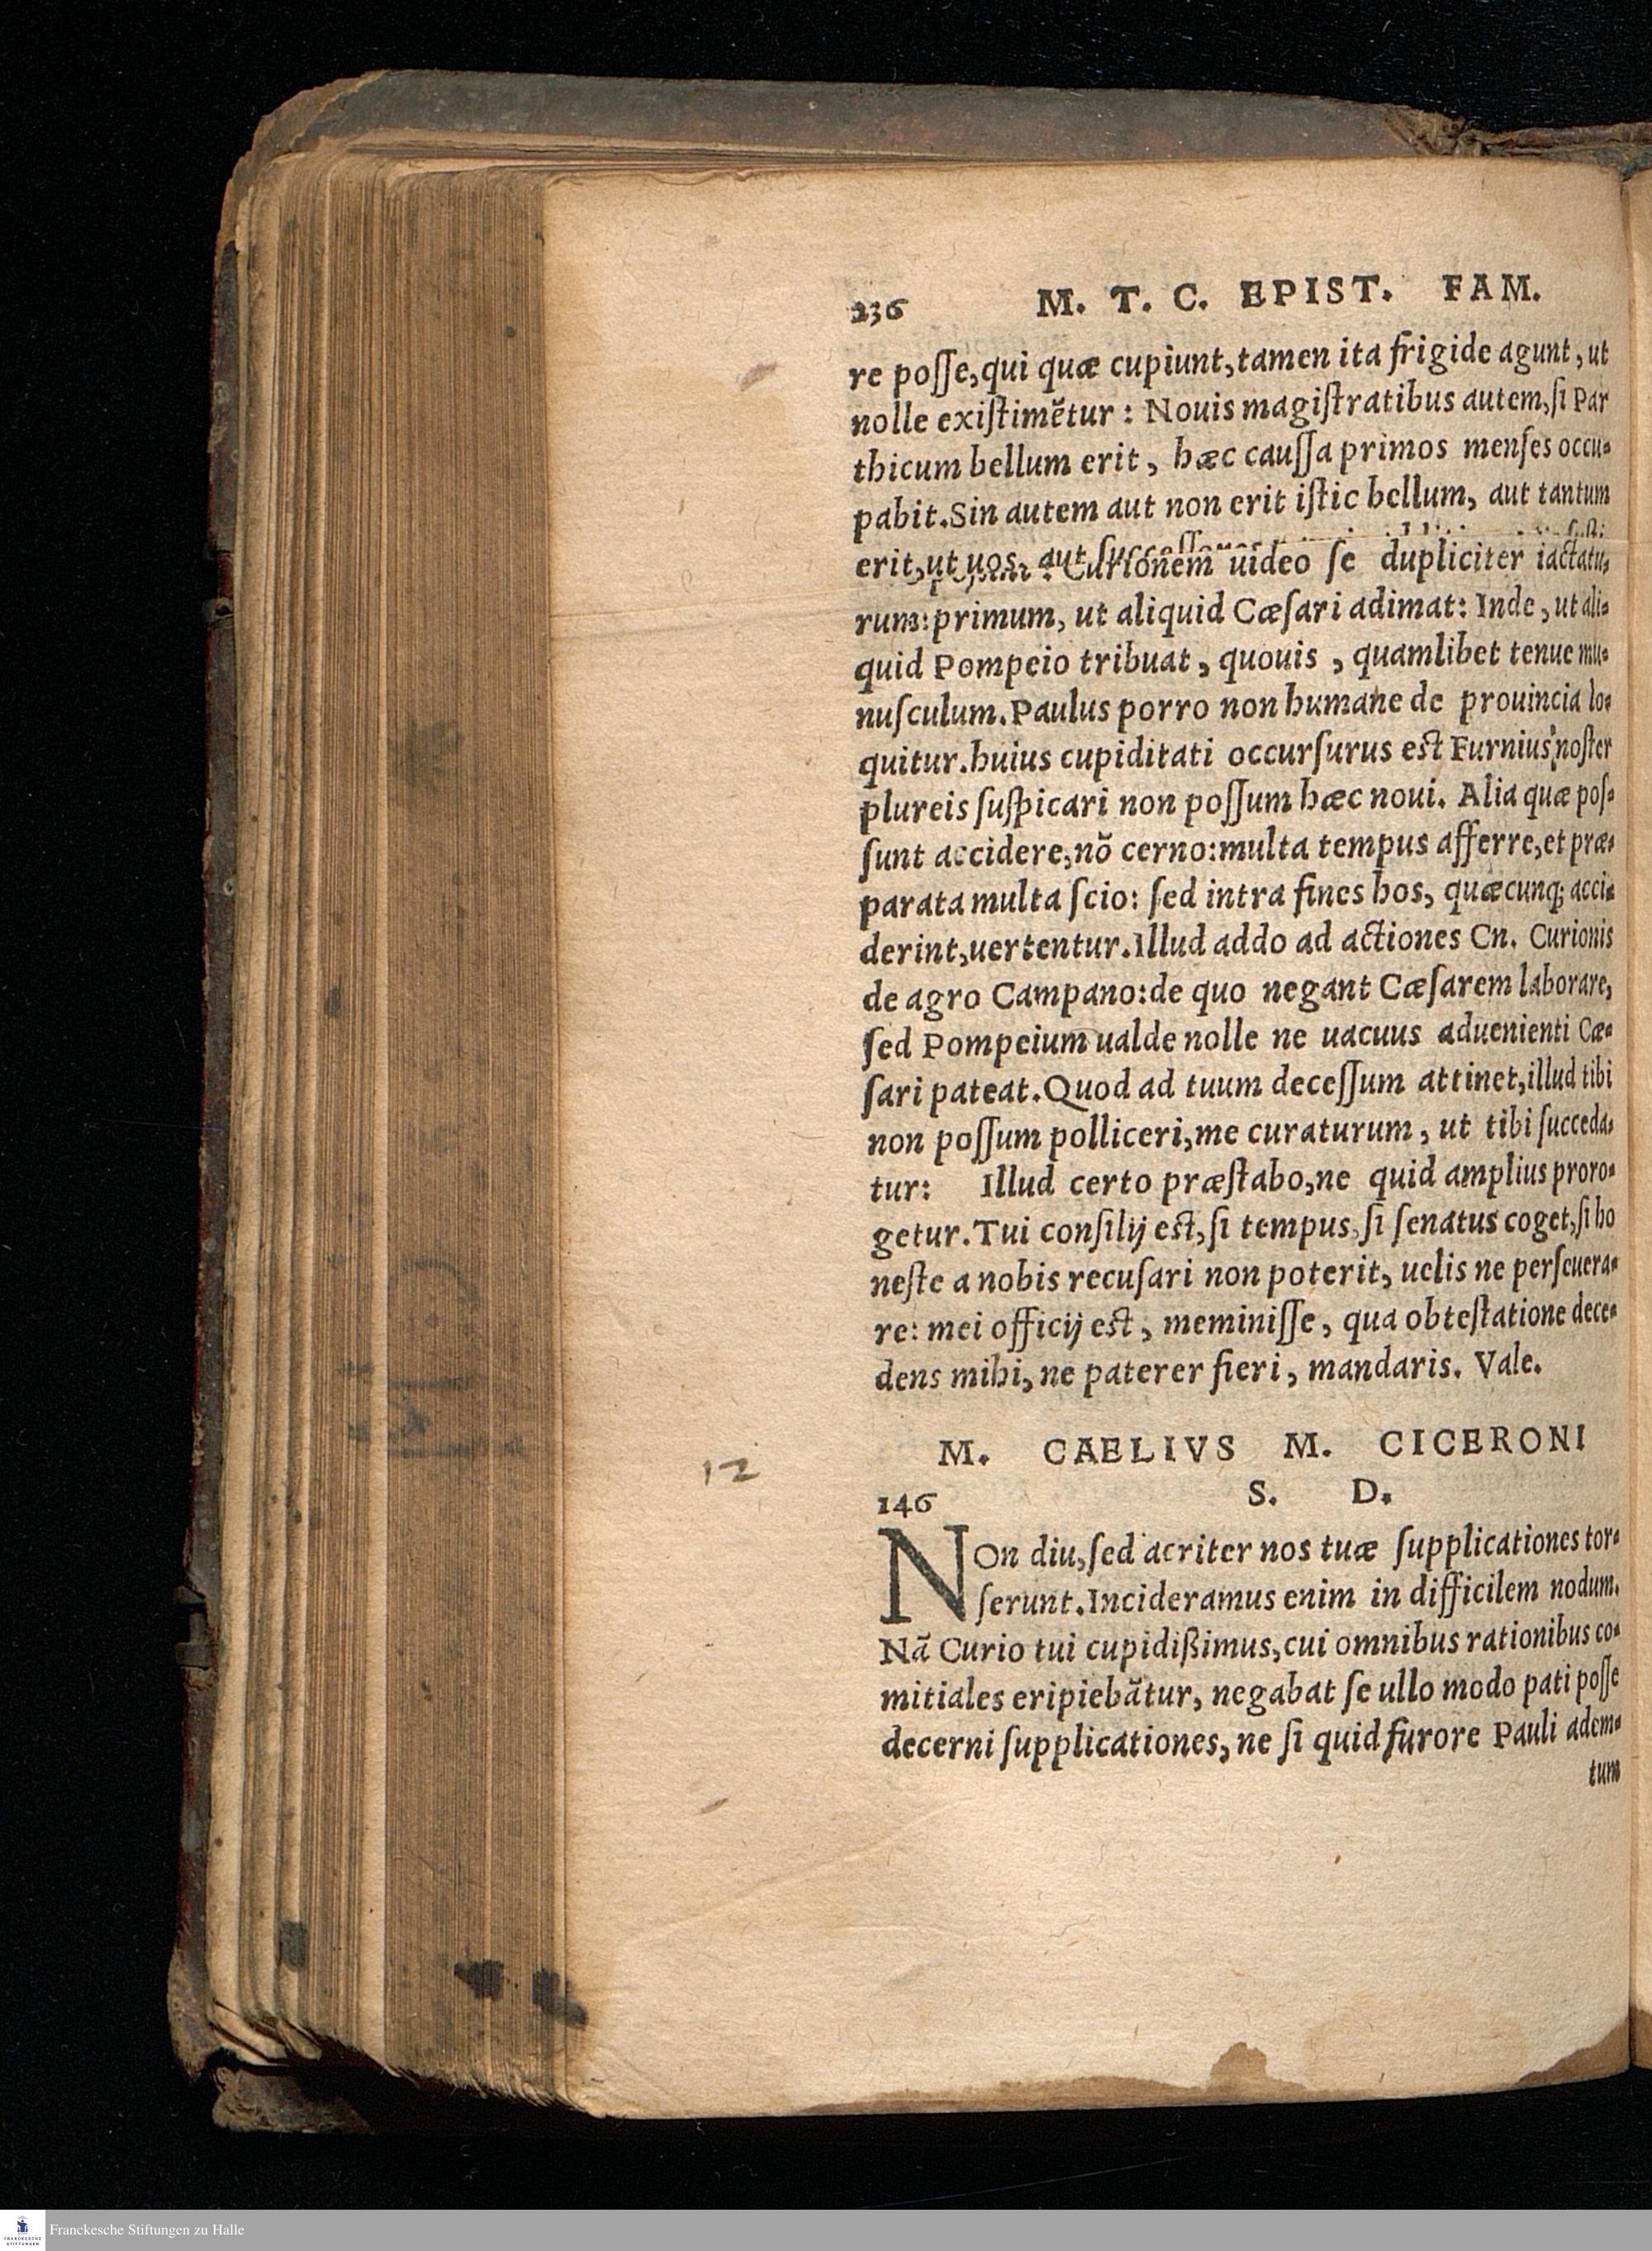 236 M. T. C. EPIST. FAM.
re poſſe,qui quæ cupiunt,tamen ita frigide agunt, ut
nolle exiſtimẽtur : Nouis magiſtratibus autem,ſi Par
thicum bellum erit, hæc cauſſa primos menſes occu-
pabit.Sin autem aut non erit iſtic bellum, aut tantum
erit,ut uos, aut
Curionem uideo ſe dupliciter iactatu-
rum:primum, ut aliquid Cæſari adimat: Inde, ut ali-
quid Pompeio tribuat, quouis, quamlibet tenue mu-
nuſculum.Paulus porro non humane de prouincia lo-
quitur.huius cupiditati occurſurus est Furnius noſter
plureis ſuſpicari non poſſum hæc noui. Alia quæ poſ-
ſunt accidere,nõ cerno:multa tempus afferre,et præ-
parata multa ſcio: ſed intra fines hos, quæcunq; acci-
derint,uertentur.Illud addo ad actiones Cn. Curionis
de agro Campano:de quo negant Cæſarem laborare,
ſed Pompeium ualde nolle ne uacuus aduenienti Cæ-
ſari pateat.Quod ad tuum deceſſum attinet,illud tibi
non poſſum polliceri,me curaturum, ut tibi ſucceda-
tur: Illud certo præſtabo,ne quid amplius proro-
getur.Tui conſilij est,ſi tempus,ſi ſenatus coget,ſi ho
neſte a nobis recuſari non poterit, uelis ne perſeuera-
re: mei officij est, meminiſſe, qua obteſtatione dece-
dens mihi, ne paterer fieri, mandaris. Vale.
M. CAELIVS M. CICERONI
12
146 S. D.
NOn diu,ſed acriter nos tuæ ſupplicationes tor-
ſerunt.Incideramus enim in difficilem nodum.
Nã Curio tui cupidißimus,cui omnibus rationibus co-
mitiales eripiebãtur, negabat ſe ullo modo pati poſſe
decerni ſupplicationes, ne ſi quid furore Pauli adem-
tum
FRANCKESCHE
STIFTUNGEN
Franckesche Stiftungen zu Halle